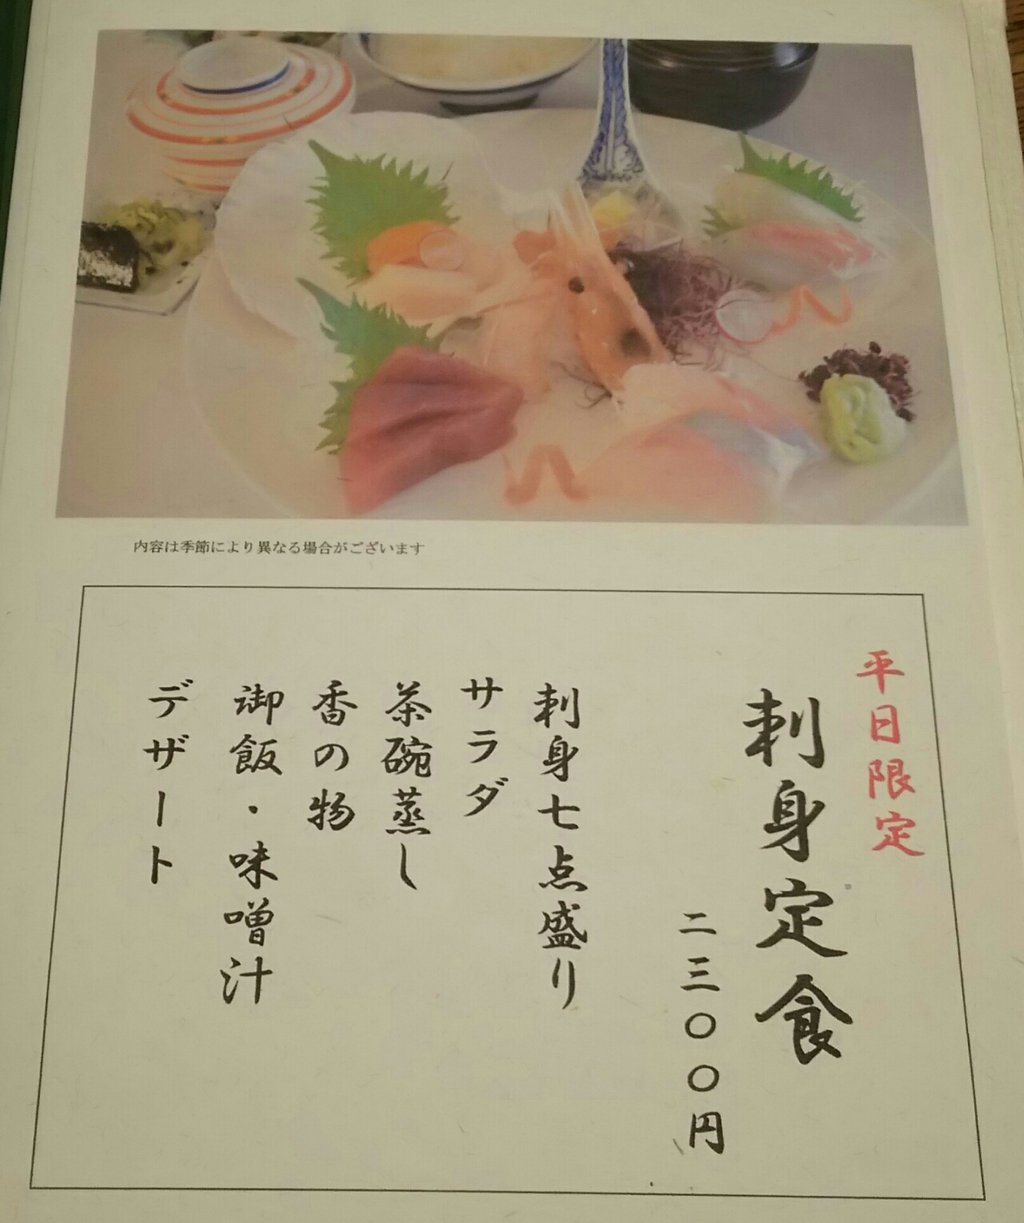 内容は季節により異なる場合がございます
平日限定
刺身定食
二三〇〇円
刺身七点盛り
サラダ
茶碗蒸し
香の物
御飯・味噌汁
デザート